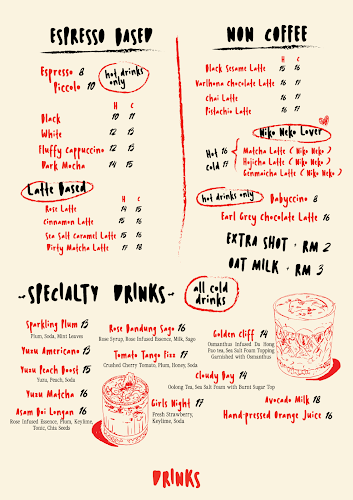 ESPRESSO BASED
Espresso 8
Piccolo 10
hot drinks only
H C
Black 10 11
White 12 13
Fluffy Cappuccino 12 13
Dark Mocha 14 15
Latte Based
H C
Rose Latte 14 15
Cinnamon Latte 15 16
Sea Salt Caramel Latte 15 16
Dirty Matcha Latte 17 18
NON COFFEE
H C
Black Sesame Latte 15 16
Valrhona Chocolate Latte 16 17
Chai Latte 16 17
Pistachio Latte 16 17
Niko Neko Lover
Hot 16
Cold 17
Matcha Latte ( Niko Neko )
Hojicha Latte ( Niko Neko )
Genmaicha Latte ( Niko Neko )
hot drinks only
Babyccino 8
Earl Grey Chocolate Latte 16
EXTRA SHOT · RM 2
OAT MILK · RM 3
~SPECIALTY DRINKS~
all cold drinks
Sparkling Plum 13
Plum, Soda, Mint Leaves
Yuzu Americano 15
Yuzu Peach Boost 15
Yuzu, Peach, Soda
Yuzu Matcha 16
Asam Boi Longan 16
Rose Infused Essence, Plum, Keylime,
Tonic, Chia Seeds
Rose Bandung Sago 16
Rose Syrup, Rose Infused Essence, Milk, Sago
Tomato Tango Fizz 17
Crushed Cherry Tomato, Plum, Honey, Soda
Cloudy Day 14
Oolong Tea, Sea Salt Foam with Burnt Sugar Top
Girls Night 17
Fresh Strawberry,
Keylime, Soda
Golden Cliff 14
Osmanthus Infused Da Hong
Pao tea, Sea Salt Foam Topping
Garnished with Osmanthus
Avocado Milk 18
Hand-pressed Orange Juice 16
DRINKS